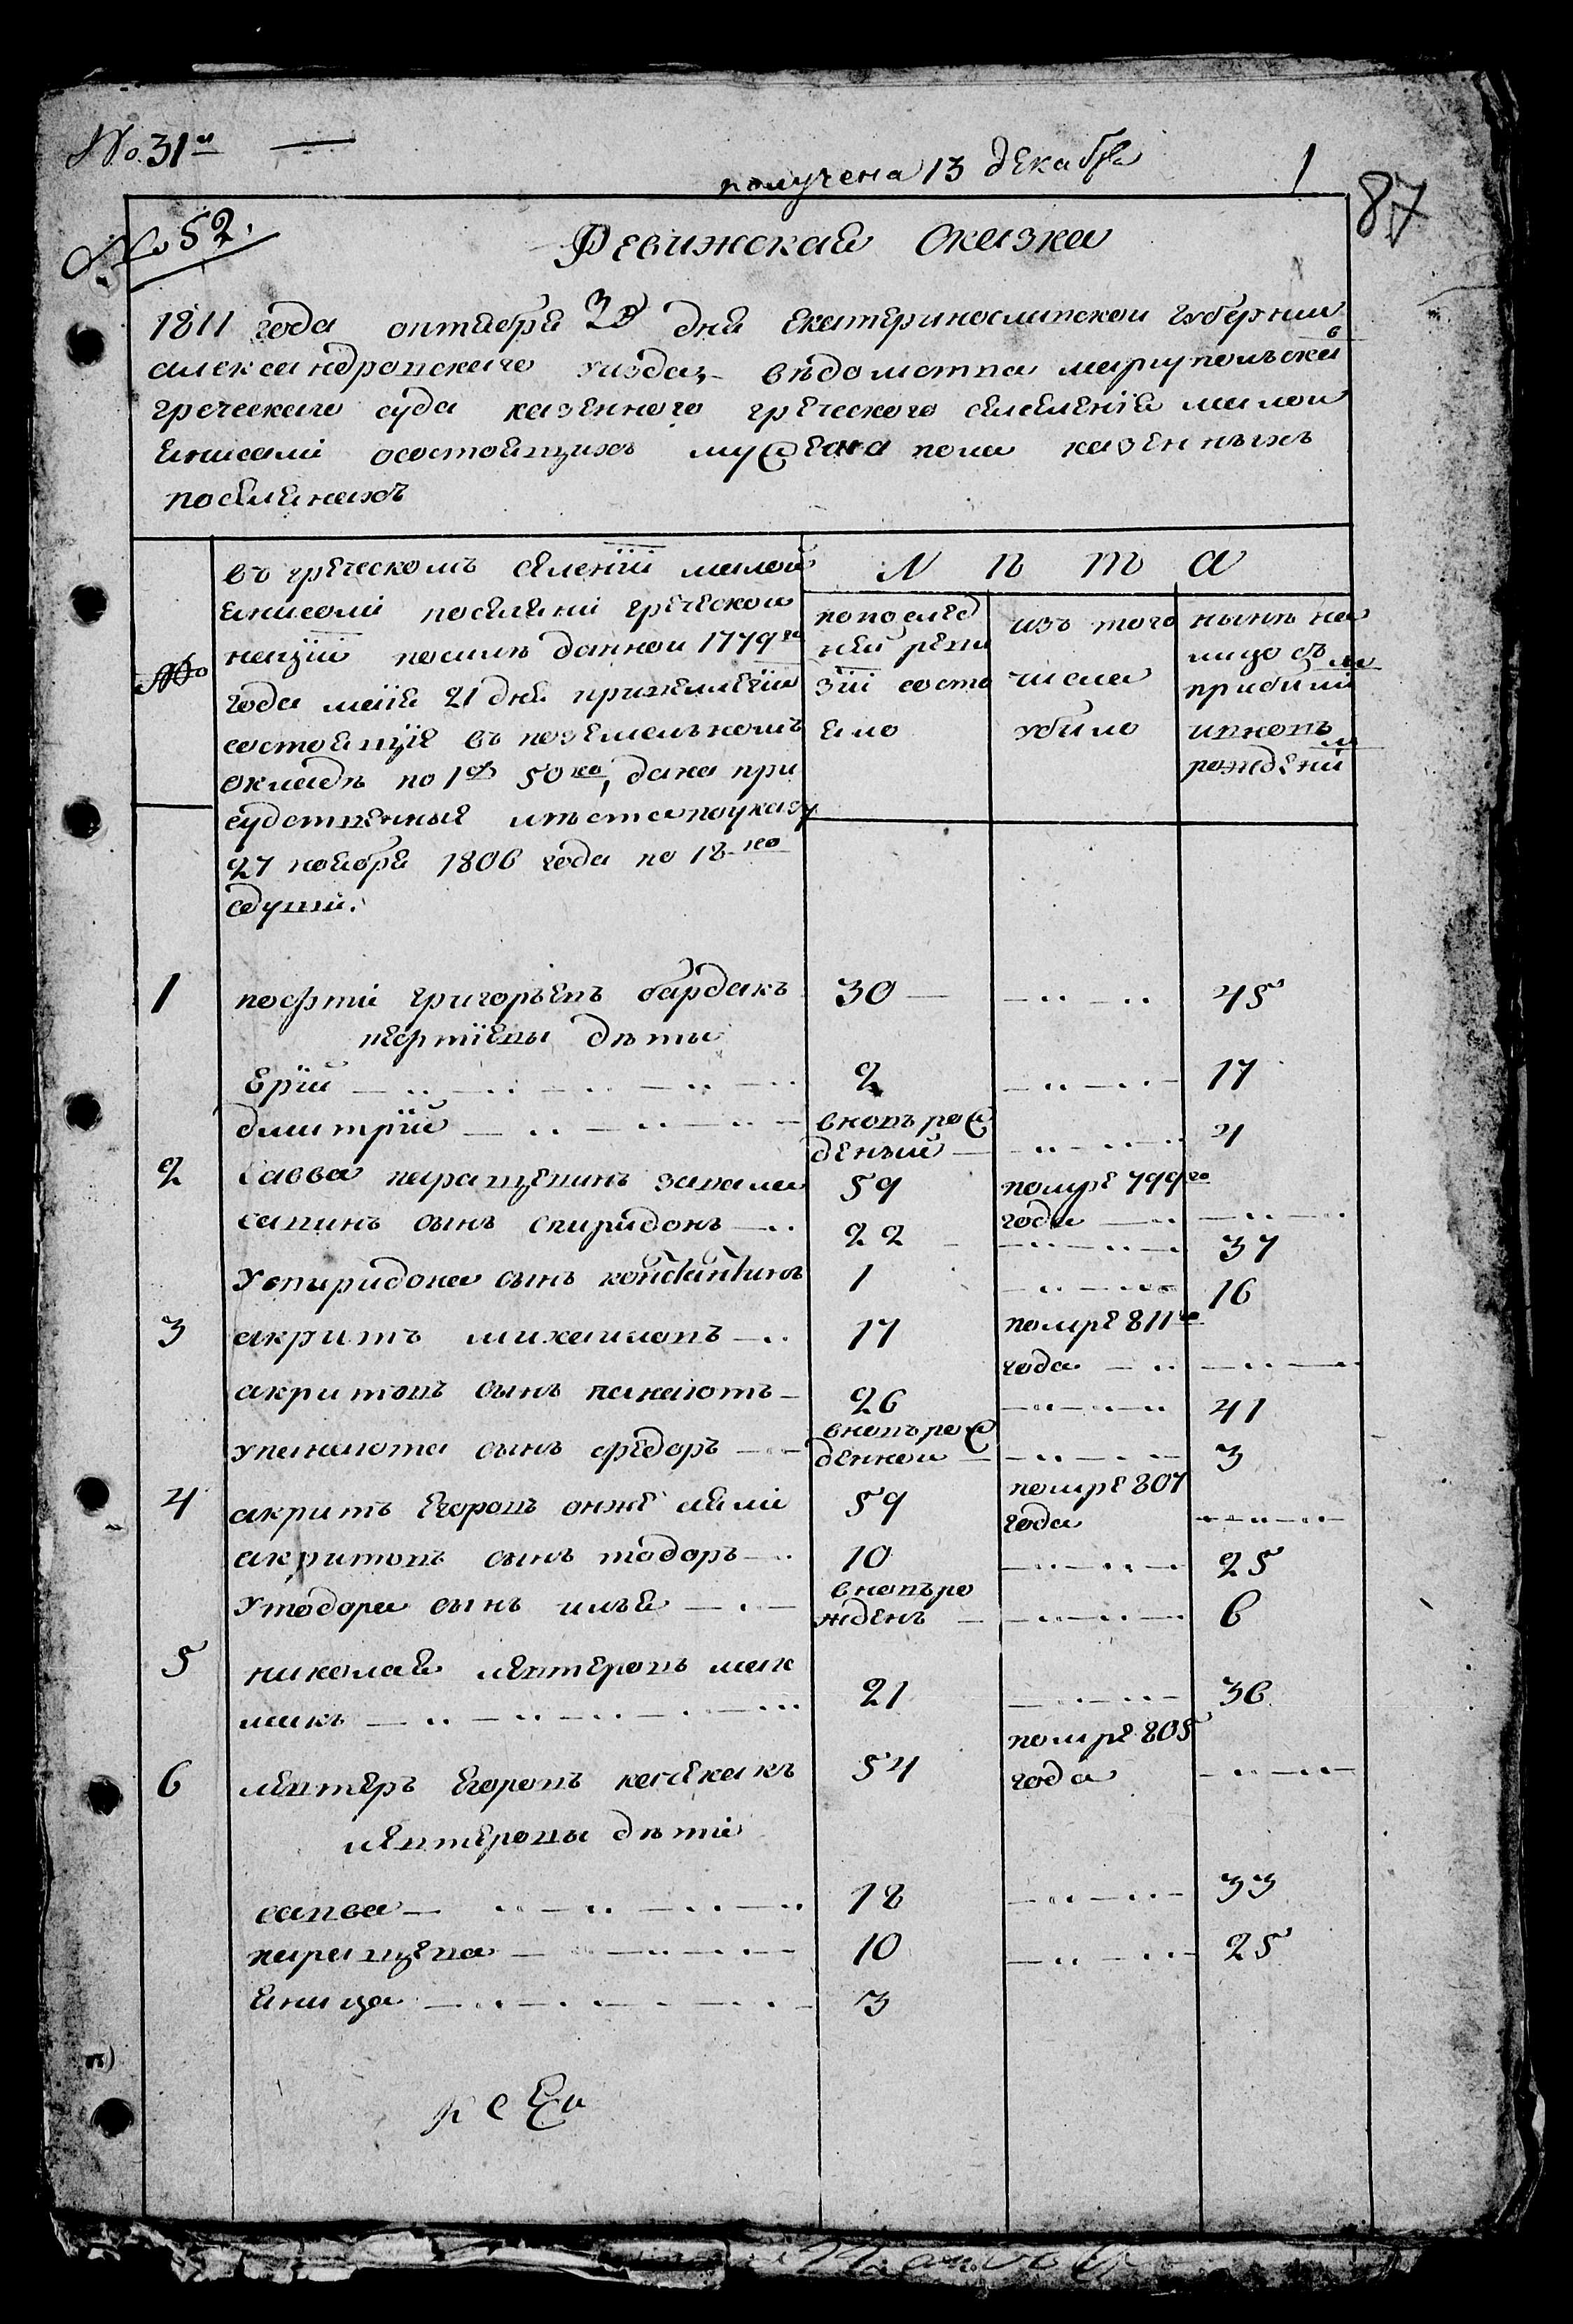 No. 31й
получена 13 декабря
1
87
No 52.
Ревижская Сказка
1811 года октября 30 дня екатеринославской губернии
александровскаго уизда, вѣдомства мариупольскаго
греческаго суда казенного греческого селеления малой
енисали состоящихъ мужеска пола казенныхъ
поселянахъ
No
въ греческомъ селенїи малой
енисоли поселяни греческои
нацыи посилѣ данной 1779го
года маїя 21 дня привилегїи
состоящїе въ поземельномъ
окладѣ по 1р 50ко, дана при
судственныя мѣста поуказу
27 ноября 1806 года по 18 ко
здуши.
Л ѣ т а
попослед
ней реви
зїи состо
яло
изъ того
числа
убыло
нынѣ на
лицо съ
прибылі
ивновь
рожденни
1 посфті григорьевъ бардакъ 30 — — .. — .. 45
несфтїевы дѣты
Ерїй — .. — .. 2 — .. — .. 17
дмитрїй — .. — .. вновь рож
деный — — .. — .. 4
2 савва паращевинъ запала 59 помре 799го
савинъ сынъ спиридонъ — .. 22 года — ..
37
Успиридона сынъ константинъ 1 — .. — .. 16
3 акритъ михаиловъ — .. 17 помре 811го
года — ..
акритовъ сынъ панаіотъ — 26 — .. — .. 41
упанаіота сынъ федоръ — вновь рож
деннои — — .. — .. 3
4 акритъ Егоровъ онже лелі 59 помре 807
года
акритовъ сынъ тодоръ — .. 10 — .. — .. 25
Утодора сынъ илья — .. — вновь ро
жденъ — — .. — .. 6
5 николай лефтеровъ мая
макъ — .. — .. 21 — .. — .. 36
6 лефтеръ Егоровъ касекакъ 54 помре 805
года — .. —
лефтеровы дѣті
савва — .. — .. 18 — .. — .. 33
паращева — .. — .. 10 — .. — .. 25
яница — .. — .. 3